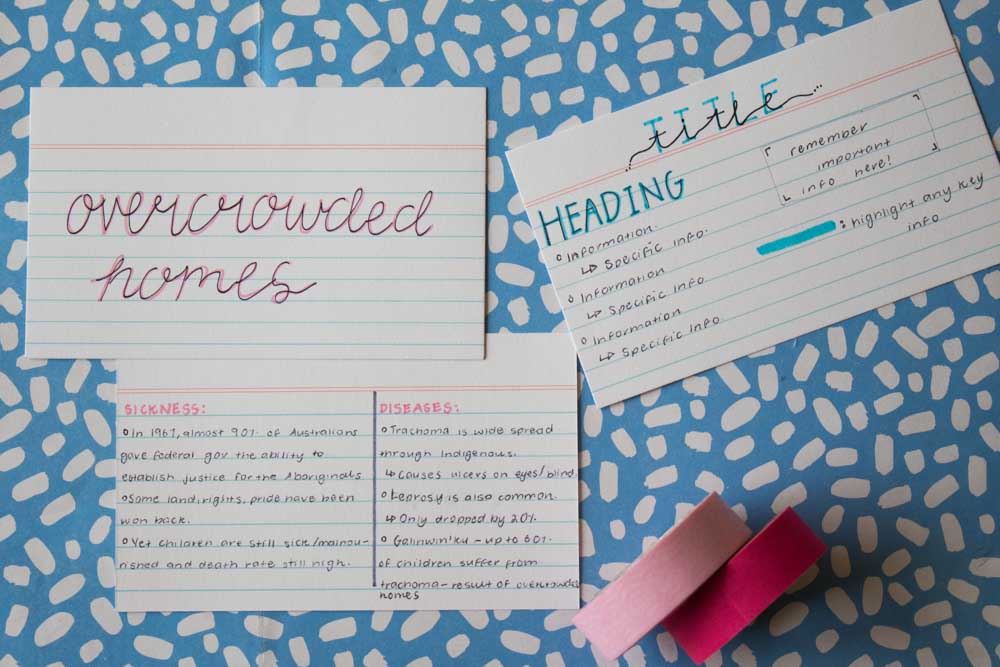 overcrowded
homes
TITLE
title
HEADING
remember
important
info here!
Information.
↳ Specific info.
Information
↳ Specific info.
Information
↳ Specific info.
: highlight any key
info
SICKNESS:
In 1967, almost 90% of Australians
gave federal gov the ability to
establish justice for the Aboriginals
Some land, rights, pride have been
won back.
Yet children are still sick/malnou-
rished and death rate still high.
DISEASES:
Trachoma is wide spread
through Indigenous.
↳ Causes ulcers on eyes/blind
Leprosy is also common.
↳ Only dropped by 20%.
Galiwin'ku - up to 60%
of children suffer from
trachoma - result of overcrowded
homes